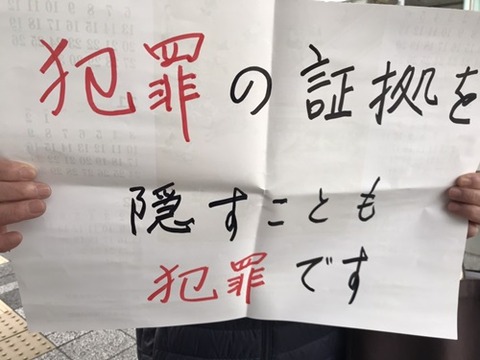 犯罪の証拠を
隠すことも
犯罪です